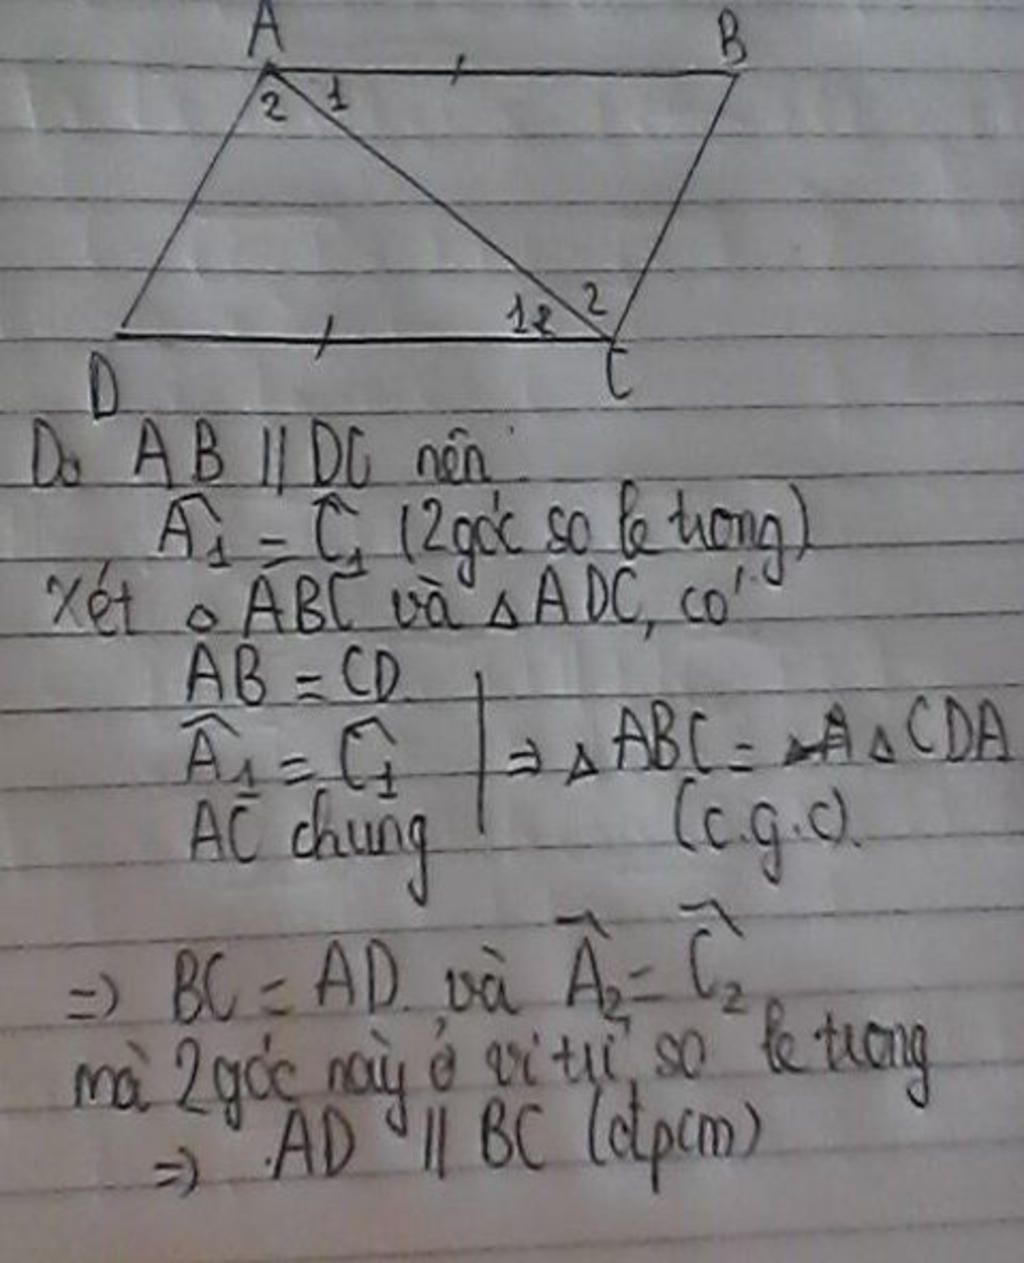 A B
2 1
1 2 2
D C
Do AB // DC nên
Â₁ = Ĉ₁ (2 góc so le trong)
Xét △ ABC và △ ADC, có
AB = CD
Â₁ = Ĉ₁ ⇒ △ ABC = △ CDA
AC chung (c.g.c).
=> BC = AD và Â₂ = Ĉ₂
mà 2 góc này ở vi trí so le trong
=> AD // BC (đpcm)